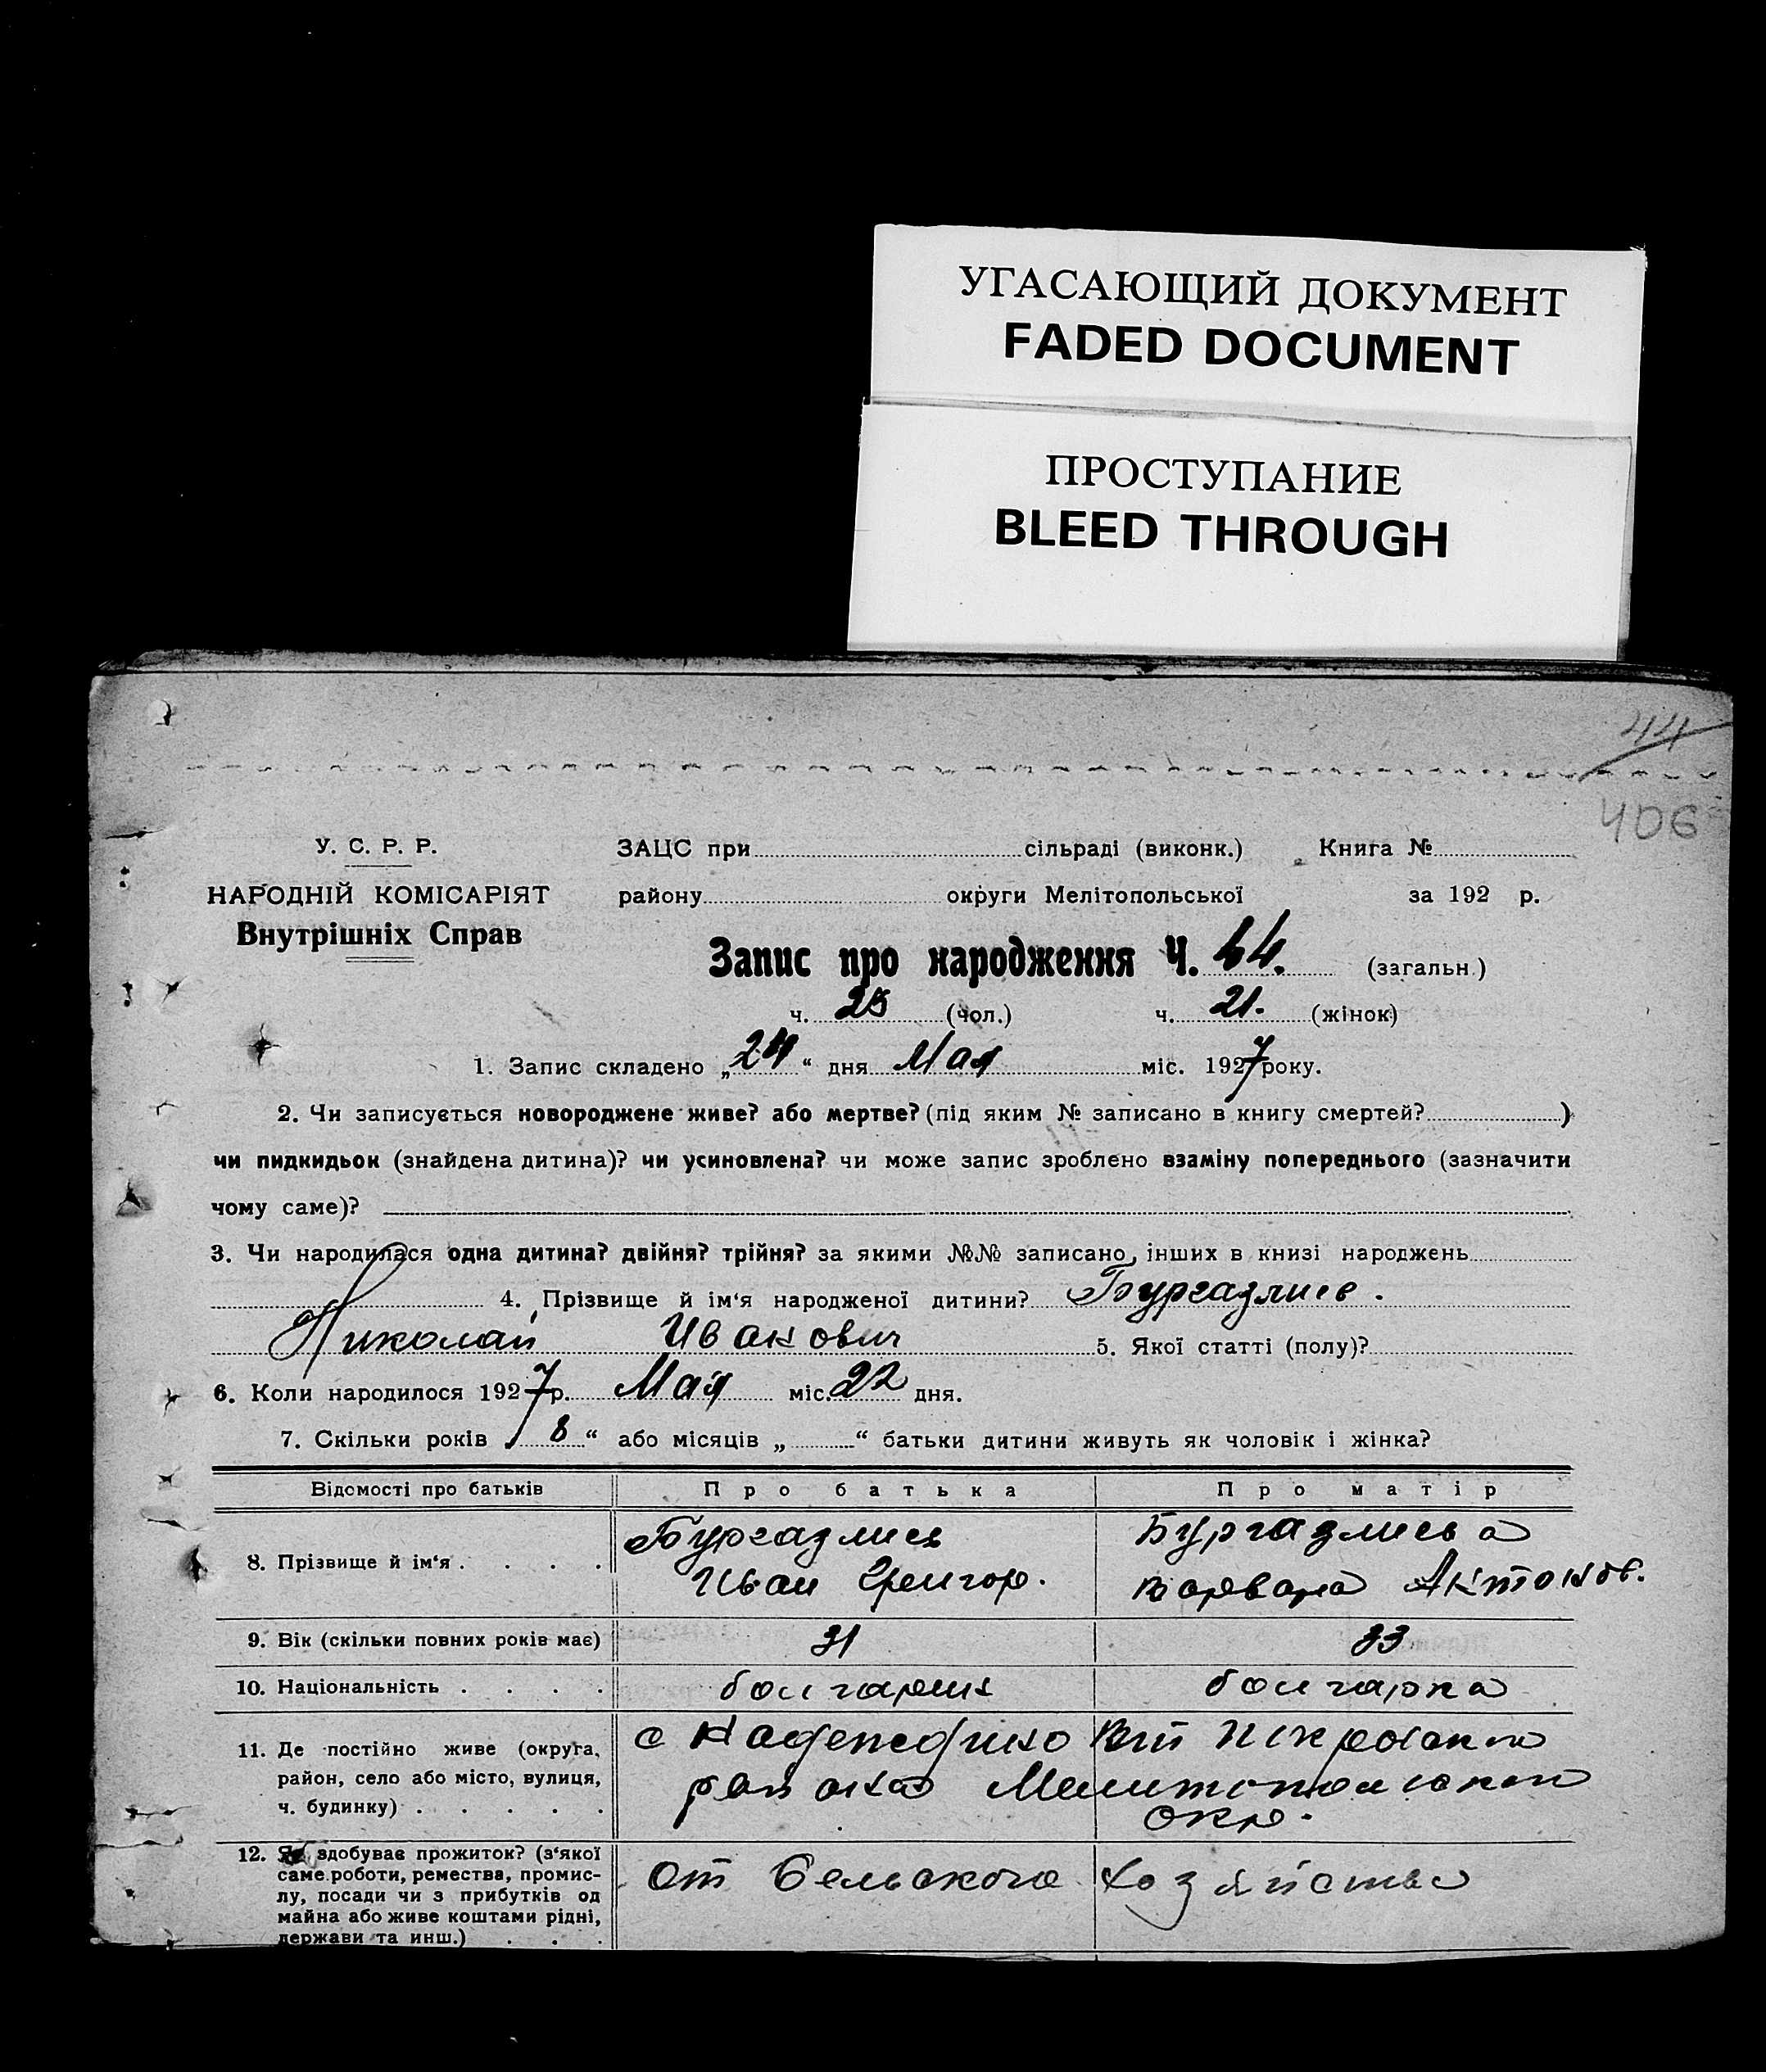 УГАСАЮЩИЙ ДОКУМЕНТ
FADED DOCUMENT
ПРОСТУПАНИЕ
BLEED THROUGH
44
406
У. С. Р. Р.
НАРОДНІЙ КОМІСАРІЯТ
Внутрішніх Справ
ЗАЦС при сільраді (виконк.) Книга №
району округи Мелітопольської за 192 р.
Запис про народження Ч. 44. (загальн.)
ч. 23 (чол.) ч. 21. (жінок)
1. Запис складено „24“ дня Мая міс. 1927 року.
2. Чи записується новороджене живе? або мертве? (під яким № записано в книгу смертей? )
чи пидкидьок (знайдена дитина)? чи усиновлена? чи може запис зроблено взаміну попереднього (зазначити
чому саме)?
3. Чи народилася одна дитина? двійня? трійня? за якими №№ записано інших в книзі народжень
4. Прізвище й ім‘я народженої дитини? Бургазлиев.
Николай Иванович 5. Якої статті (полу)?
6. Коли народилося 1927 р. Мая міс. 22 дня.
7. Скільки років „8“ або місяців „ “ батьки дитини живуть як чоловік і жінка?
Відомості про батьків Про батька Про матір
8. Прізвище й ім‘я . . . . Бургазлиев Бургазлиева
Иван Григор. Варвара Антонов.
9. Вік (скільки повних років має) 31 33
10. Національність . . . . болгарин болгарка
11. Де постійно живе (округа,
район, село або місто, вулиця,
ч. будинку) . . . . .
с Надеждино
района Мелитопольской
окр.
12. Як здобуває прожиток? (з‘якої
саме роботи, ремества, промис-
лу, посади чи з прибутків од
майна або живе коштами рідні,
держави та инш.) . . .
От Сельского хозяйства